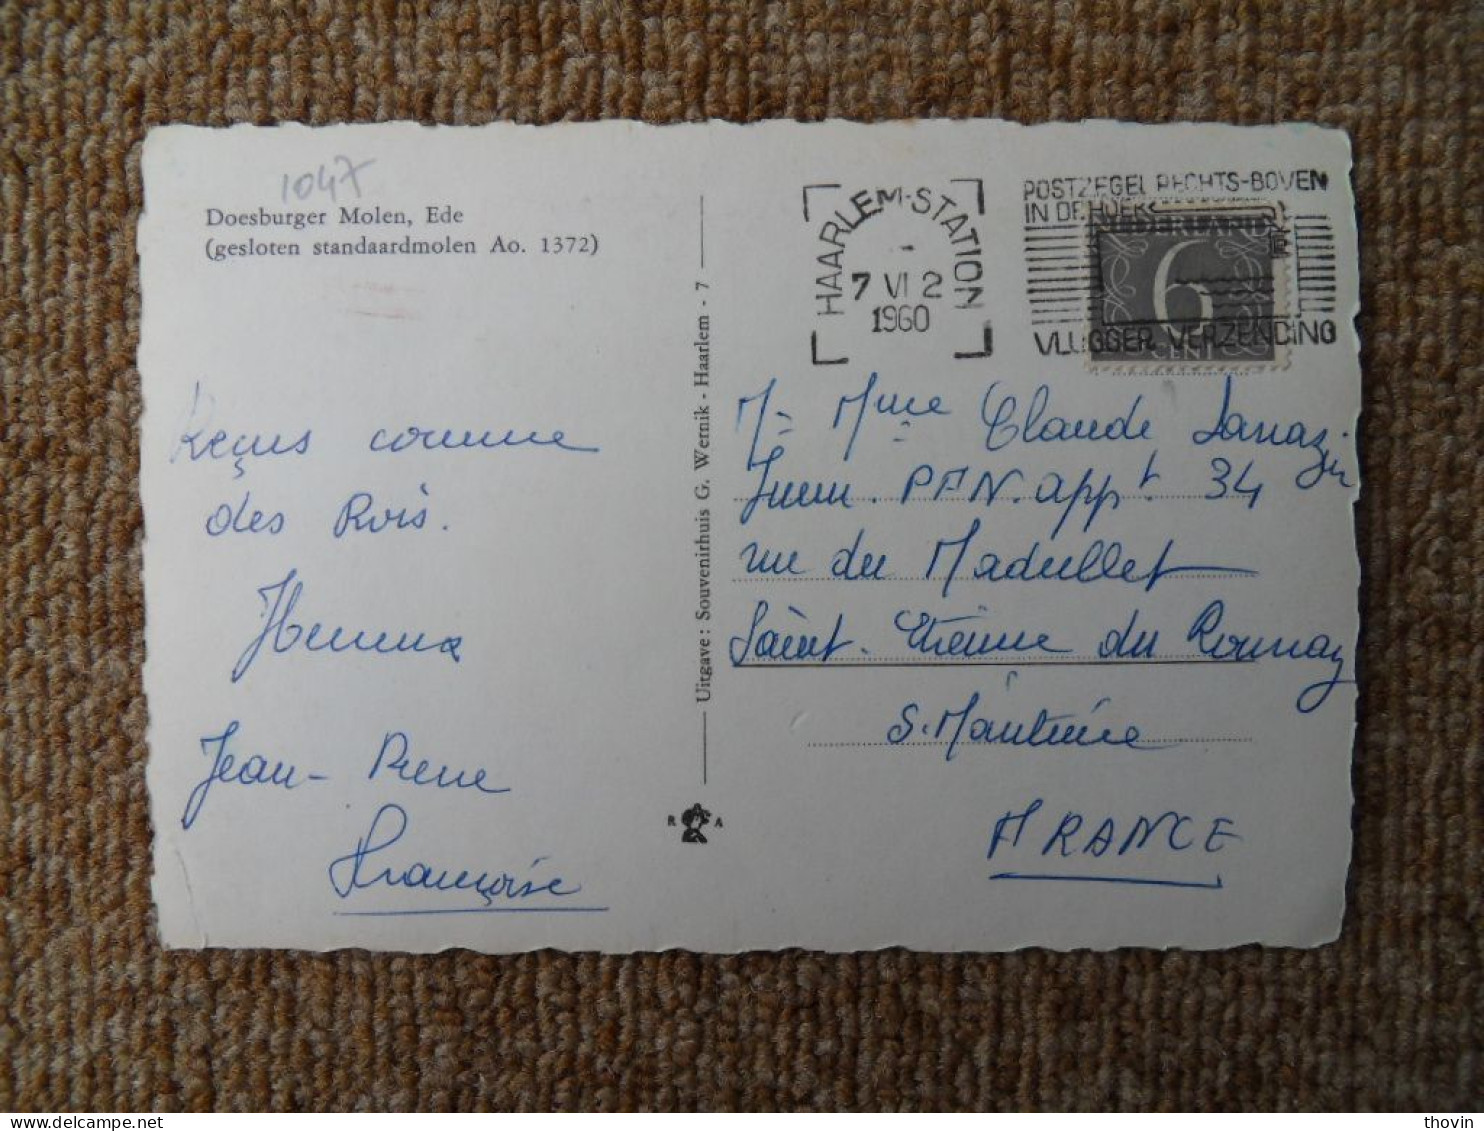 1047
Doesburger Molen, Ede
(gesloten standaardmolen Ao. 1372)
Reçus comme
des Rois.
Jean-Pierre
Françoise
Uitgave: Souvenirhuis G. Wernik - Haarlem - 7
R A
HAARLEM-STATION
7 VI 2
1960
POSTZEGEL RECHTS-BOVEN
IN DE HOEK
VLUGGER VERZENDING
NEDERLAND
6
CENT
M- Mme Claude Sarrazin
Imm. PFN. appt. 34
rue du Madullet
Saint-Etienne du Rouvray
S. Maritime
FRANCE
thovin